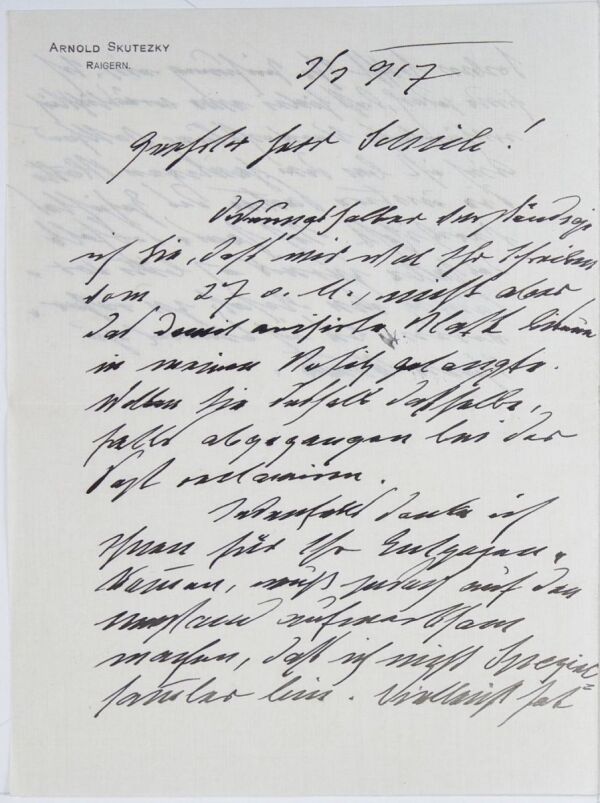 ARNOLD SKUTEZKY
RAIGERN.
917
Geehrter Herr Schick!
Ordnungshalber verständige
ich Sie, daß mir wol Ihr Schreiben
vom 27 v. M., nicht aber
das damit avisirte Blatt
in meinen Besitz gelangte.
Wollen Sie deshalb dasselbe,
falls abgegangen bei der
Post reclamiren.
Jedenfalls danke ich
Ihnen für Ihr Entgegen-
kommen, muß jedoch auf den
Umstand aufmerksam
machen, daß ich nicht Spezial=
samler bin. Vielleicht hat